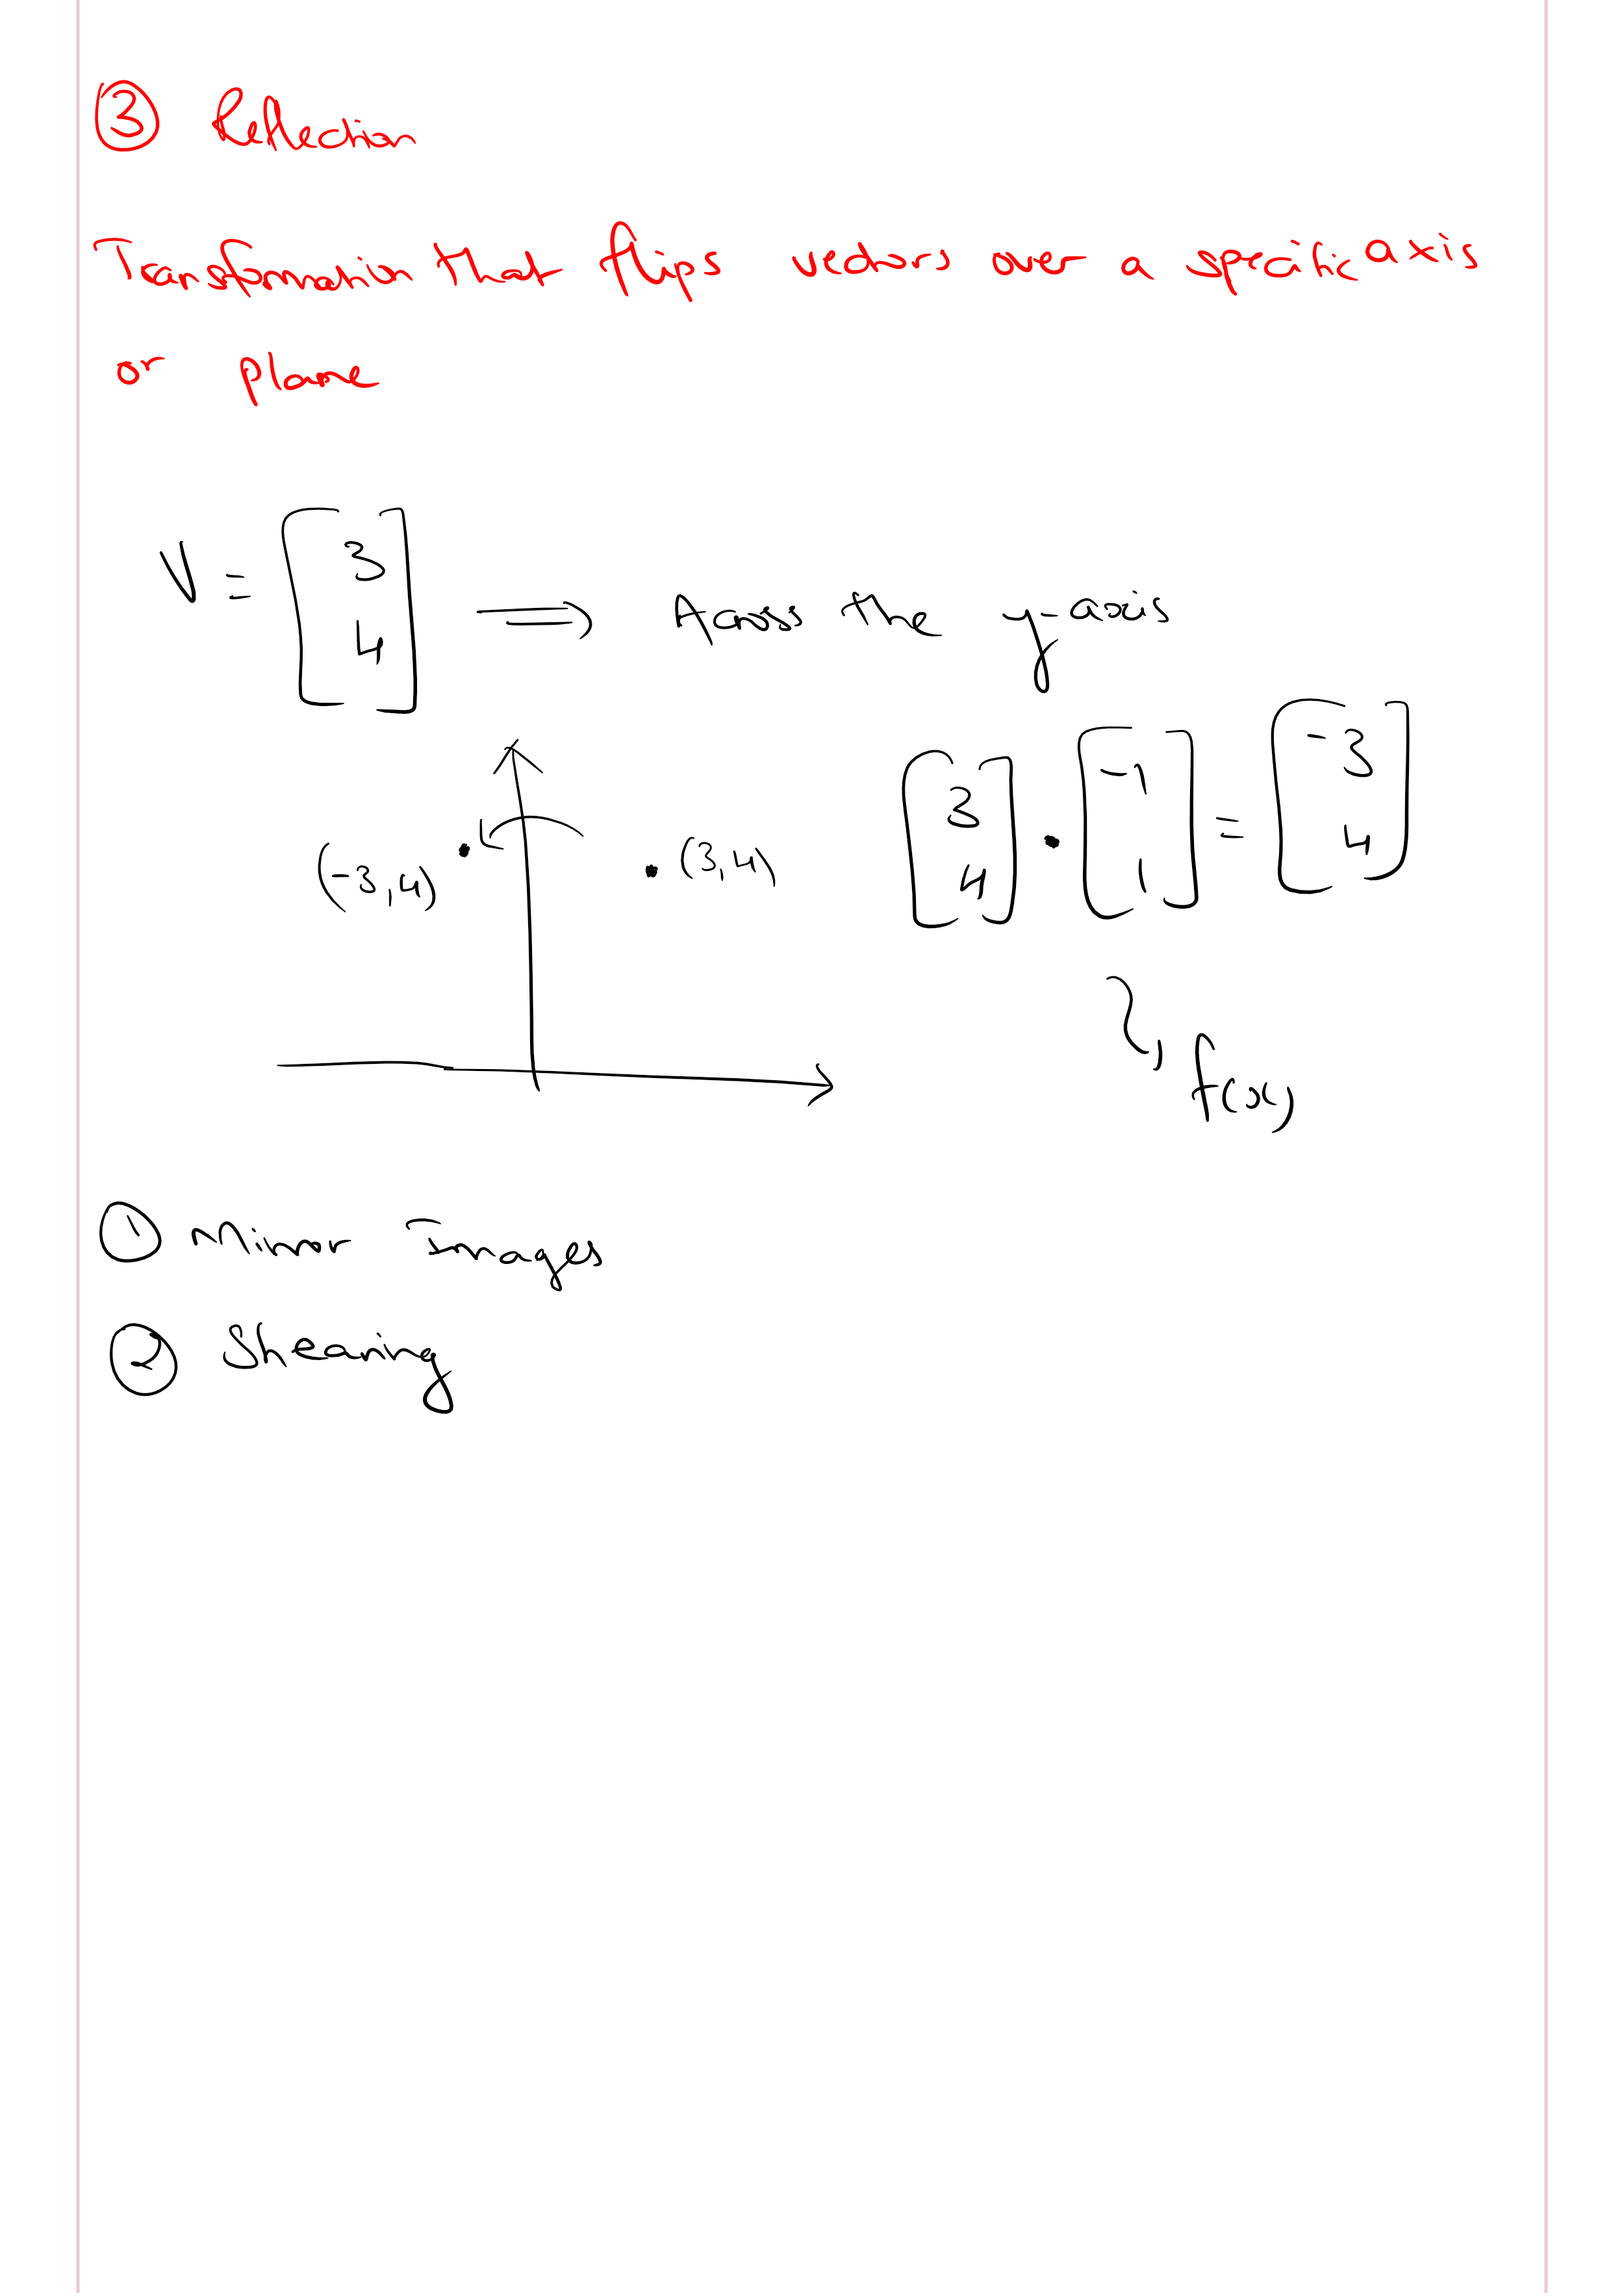 ③ Reflection
Transformation that flips vectors over a specific axis
or plane
V = [3 4] → Across the y-axis
[3 4] · [-1 1] = [-3 4]
(-3,4) (3,4)
f(x)
① Mirror Images
② Shearing